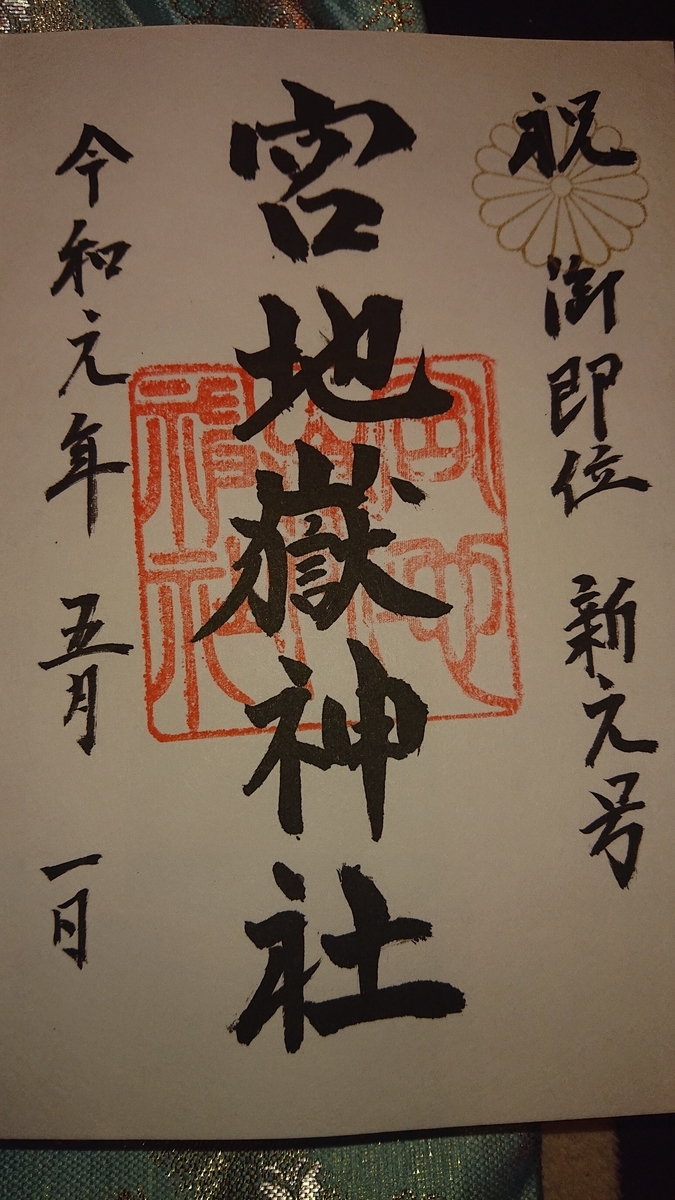 祝 御即位 新元号
宮地嶽神社
令和元年 五月 一日